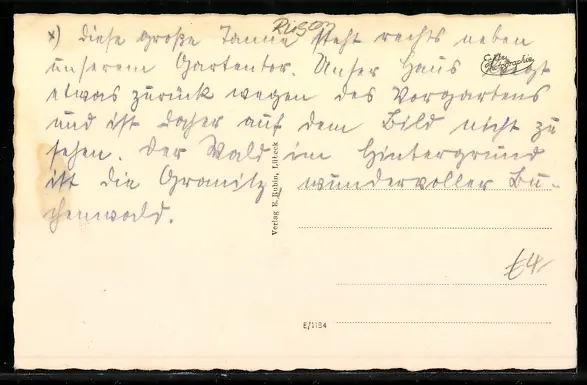 Rügen
x) Diese große Tanne steht rechts neben
unserem Gartentor. Unser Haus liegt
etwas zurück wegen des Vorgartens
und ist daher auf dem Bild nicht zu
sehen. Der Wald im Hintergrund
ist die Granitz wundervoller Bu-
chenwald.
Echte Photographie
Verlag E. Rubin, Lübeck
E/1184